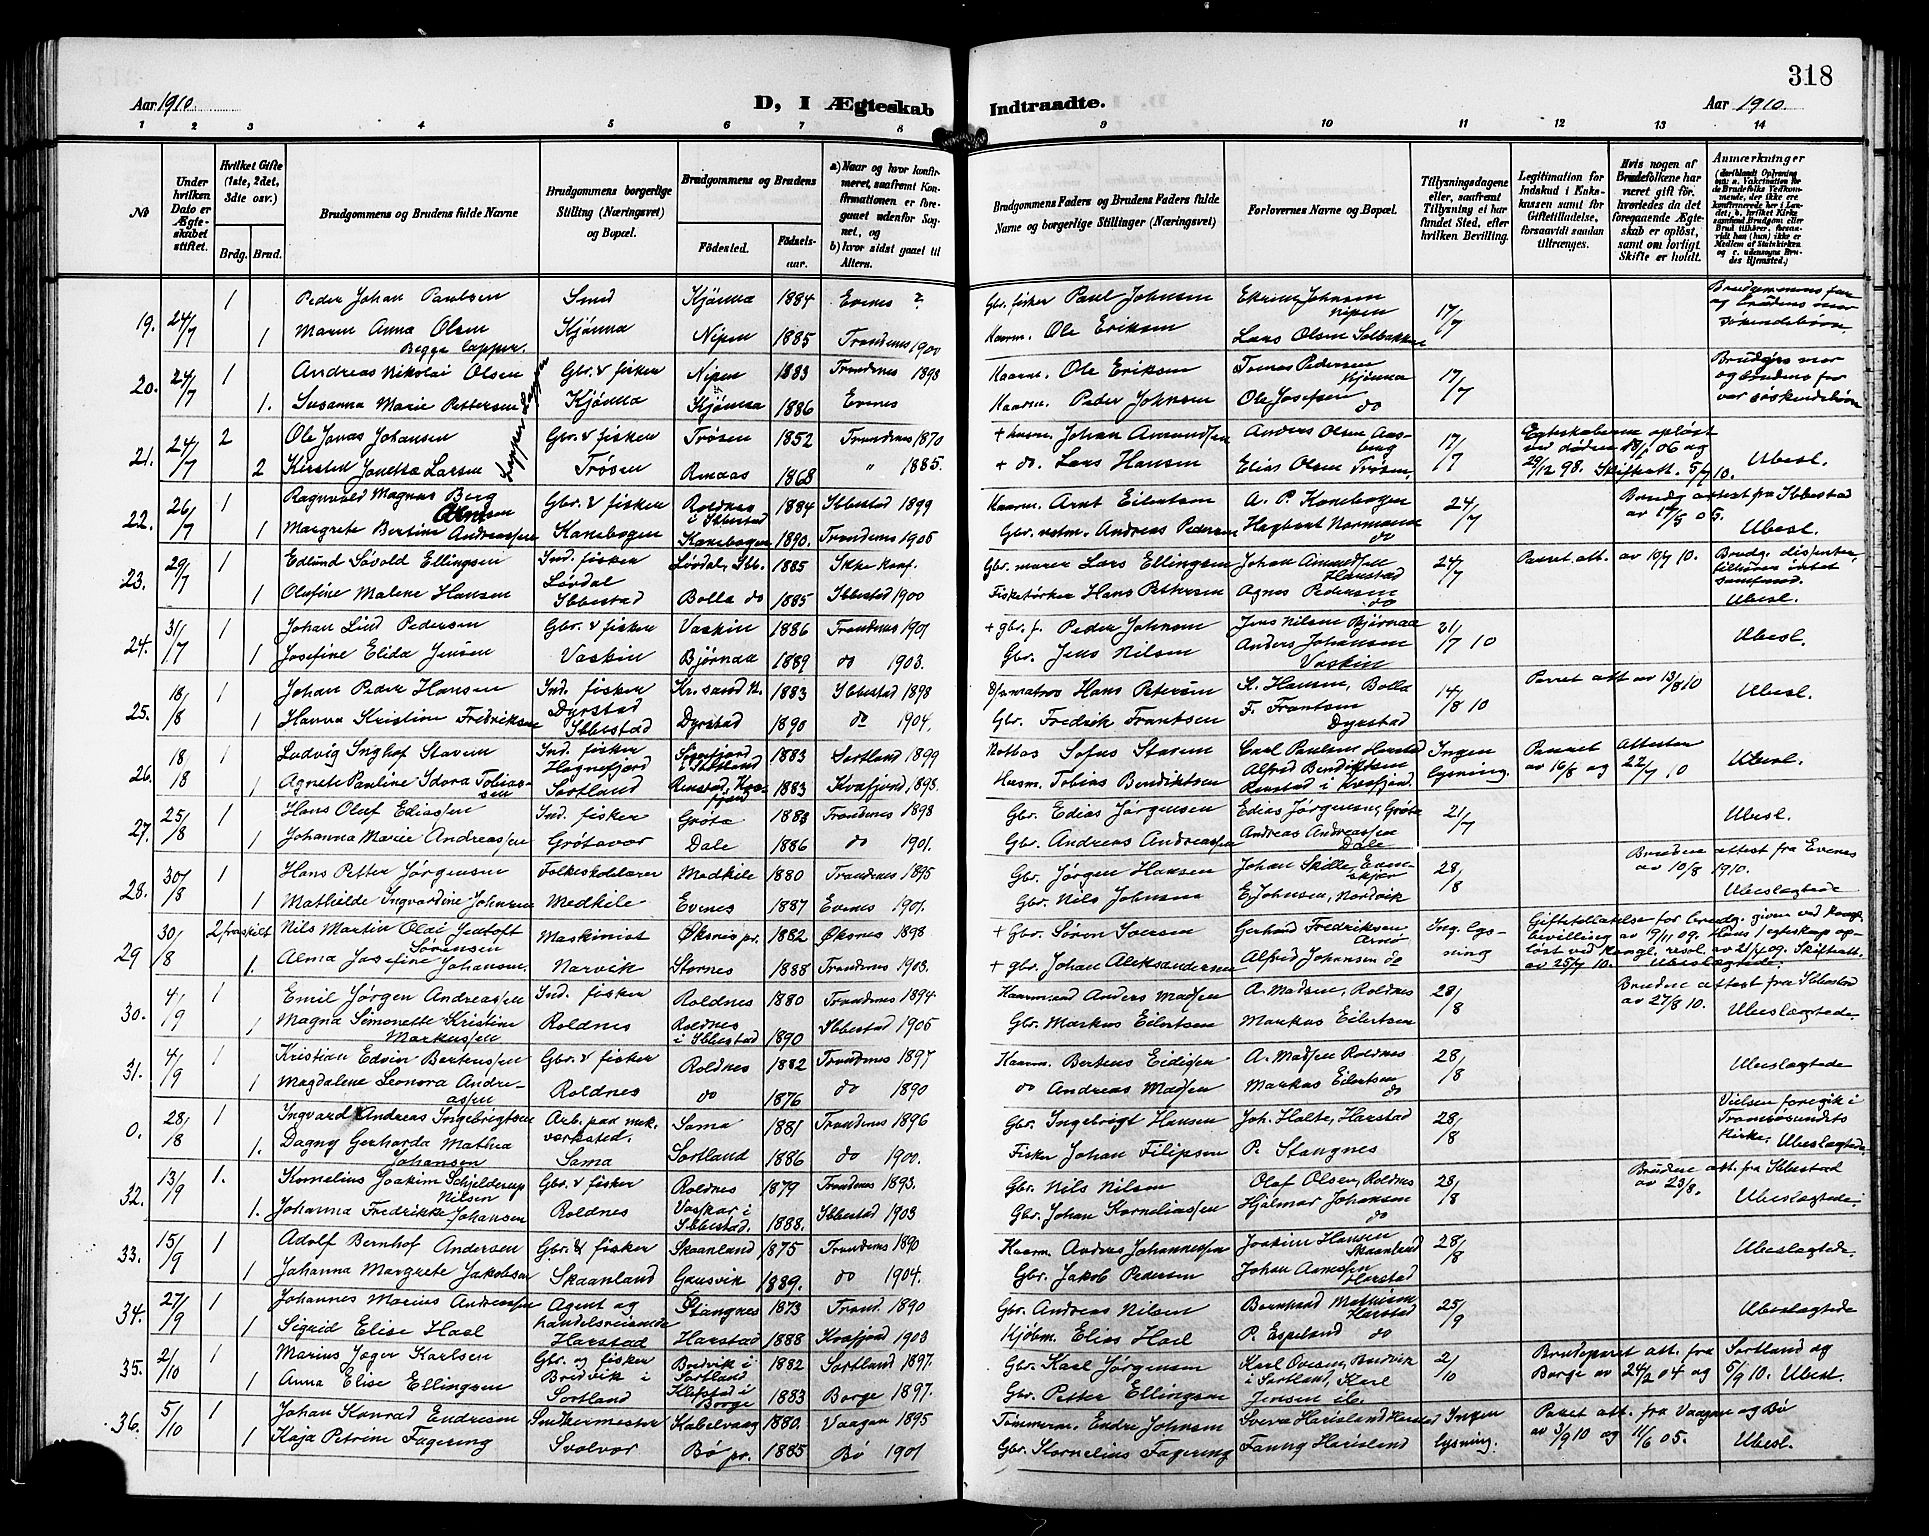 318
Aar 1910. D, I Ægteskab Indtraadte. Aar 1910.
1 2 3 4 5 6 7 8 9 10 11 12 13 14
№
Under hvilken Dato er Ægteskabet stiftet.
Hvilket Gifte (1ste, 2det, 3dte osv.)
Brdg. Brud.
Brudgommens og Brudens fulde Navne
Brudgommens borgerlige Stilling (Næringsvei) og Bopæl.
Brudgommens og Brudens
Fødested. Fødselsaar.
a) Naar og hvor konfirmeret, saafremt Konfirmationen er foregaaet udenfor Sognet, og b) hvor sidst gaaet til Alters.
Brudgommens Faders og Brudens Faders fulde Navne og borgerlige Stillinger (Næringsvei)
Forlovernes Navne og Bopæl.
Tillysningsdagene eller, saafremt Tillysning ei har fundet Sted, efter hvilken Bevilling.
Legitimation for Indskud i Enkekassen samt for Giftetilladelse, forsaavidt saadan tiltrænges.
Hvis nogen af Brudefolkene har været gift før, hvorledes da det foregaaende Ægteskab er opløst, samt om lovligt Skifte er holdt.
Anmærkninger
19. 24/7 1 Peder Johan Paulsen Smed Kjønna 1884 Evenes ? Gbr. fisker Paul Johnsen Nipen 17/7 Brudgommens far og brudens mor søskendebørn
1 Maren Anna Olsen Kjønna Nipen 1885 Trondenes 1900 Haarm. Ole Eriksen Lars Olsen Solbakken
Begge lapper.
20. 24/7 1 Andreas Nikolai Olsen Gbr. & fisker Nipen 1883 Trondenes 1898 Haarm. Ole Eriksen Tomas Pedersen Kjønna 17/7 Brudgs mor og brudens far var søskendebørn
1. Susanna Marie Pettersen Kjønna Kjønna 1886 Evenes Haarm. Peder Johnsen Ole Josefsen do
Lapper
21. 24/7 2 Ole Jonas Johansen Gbr. & fisker Trøsen 1852 Trondenes 1870 + husm. Johan Amundsen Anders Olsen Aasberg 17/7 Egteskaberne opløst ved døden
2 Kirsten Jonetta Larsen Trøsen Renaas 1868 " 1885. + do. Lars Hansen Elias Olsen Trøsen 29/12 98. Skifteatt. 5/7 10. Ubesl.
22. 26/7 1 Ragnvald Magnus Berg Arntsen Gbr. & fisker Roldnes i Ibbestad 1884 Ibbestad 1899 Haarm. Arnt Eilertsen A. P. Kanebogen 24/7 Brudg attest fra Ibbestad
1 Margrete Bertine Andreassen Kanebogen Kanebogen 1890. Trondenes 1905 Andreas Pedersen Hagbart Normann do Ubesl.
23. 29/7 1 Edlund Søvold Ellingsen Ind. fisker Løvdal, Ibb. 1885 Ikke konf. Gbr. murer Lars Ellingsen Johan Amundsen Harstad 24/7 Parret. att. av 10/7 10. Brudg. dissenter, tilhører intet samfund.
1 Olufine Malene Hansen Løvdal Ibbestad Bolla do 1885 Ibbestad 1900 Hans Pettersen Agnes Pedersen do Ubesl.
24. 31/7 1 Johan Lind Pedersen Gbr. & fisker Vaskin 1886 Trondenes 1901 + gbr. f. Peder Johnsen Jens Nilsen Bjørnaa 31/7 10 Ubesl.
1 Josefine Elida Jensen Vaskin Bjørnaa 1889 do 1903. Gbr. Jens Nilsen Anders Johansen Vaskin
25. 18/8 1 Johan Peder Hansen Ind. fisker Kr.sand N. 1883 Ibbestad 1898 Hans Petersen K. Hansen, Bolla 14/8 10 Parret att av 13/8 10 Ubesl.
1 Hanna Kristine Fredriksen Dyrstad Ibbestad Dyrstad 1890 do 1904. Gbr. Fredrik Frantsen F. Frantsen Dyrstad
26. 18/18 1 Ludvig Inghof Stavem Ind. fisker Sigerfjord i Sortland 1883 Sortland 1899 Sofus Stavem Carl Paulsen Harstad Ingen lysning. Parret Attester Ubesl.
1 Agnete Pauline Idora Tobiassen Hognefjord Sortland Renstad, Kvæfjord 1883 Kvæfjord 1898. Husm. Tobias Bendiktsen Alfred Bendiktsen Renstad i Kvæfjord. av 16/8 og 22/7 10
27. 25/8 1 Hans Oluf Eliassen Ind. fisker Grøta 1883 Trondenes 1898 Gbr. Edias Jørgensen Edias Jørgensen, Grøta 21/7 Ubesl.
1 Johanna Marie Andreassen Grøtavær Dale 1886 do 1901. Gbr. Andreas Andreassen Andreas Andreassen Dale
28. 30/8 1 Hans Petter Jørgensen Folkeskolelærer Medkile 1880 Trondenes 1895 Gbr. Jørgen Hansen Johan Skille, 28/8 Brudens attest fra Evenes av 10/8 1910.
1 Mathilde Ingvardine Johnsen Medkile Evenes 1887 Evenes 1901. Gbr. Nils Johnsen E. Johnsen, Nordvik Ubeslægtede
29 30/8 2 fraskilt Nils Martin Oldi Jentoft Sørensen Maskinist Øksnes pr. 1882 Øksnes 1898 + Gbr. Søren Iversen Gerhard Fredriksen, Arnø Ing. lysning Giftetilladelse for brudg. given ved kongl. bevilling av 19/11 09. Hans 1 egteskap opløst ved kongl. resol. av 21/4 09. Skifteatt. av 25/7 10. Ubeslægtede.
1. Alma Josefine Johansen. Narvik Stornes 1888 Trondenes 1903. + gbr. Johan Aleksandersen Alfred Johansen do
30. 4/9 1 Emil Jørgen Andreassen Ind. fisker Roldnes 1880 Trondenes 1894 Haarmand Anders Madsen A. Madsen, Roldnes 28/8 Brudens attest fra Ibbestad av 27/8 10.
1 Magna Simonette Kristine Markussen Roldnes Roldnes i Ibbestad 1890 Ibbestad 1905 Gbr. Markus Eilertsen Markus Eilertsen Ubeslægtede.
31. 4/9 1 Kristian Edvin Bertenssen Gbr. & fisker Roldnes 1882 Trondenes 1897 Haarm. Bertens Eidissen A. Madsen Roldnes 28/8 Ubeslægtede
1 Magdalene Leonora Andreassen Roldnes do 1876 do 1890 do Andreas Madsen Markus Eilertsen do
0. 28/8 1 Ingvard Andreas Ingebrigtsen Arb. paa mek. verksted. Sama 1881 Trondenes 1896 Gbr. Ingebrigt Hansen Joh. Holte, Harstad 28/8 Vielsen foregik i Tromsøsundets Kirke. Ubeslægtede
1. Dagny Gerharda Mathea Johansen Sama Sortland 1886 do 1900. Fisker Johan Filipsen P. Stangnes
32. 13/9 1. Kornelius Joakim Schjelderup Nilsen Gbr. & fisker Roldnes 1879 Trondenes 1893. Gbr. Nils Nilsen Olaf Olsen, Roldnes 28/8 Brudens att. fra Ibbestad av 23/8.
1. Johanna Fredrikke Johansen Roldnes Vasskar i Ibbestad. 1888. Ibbestad 1903 Gbr. Johan Korneliassen Hjalmar Johansen do Ubeslægtede
33. 15/9 1 Adolf Bernhof Andersen Gbr. & fisker Skaanland 1875 Trondenes 1890 Haarm. Anders Johannessen Joakim Hansen Skaanland 28/8 Ubeslægtede.
1 Johanna Margrete Jakobsen Skaanland Gausvik 1889. do 1904. Gbr. Jakob Pedersen Johan Arnessen Harstad
34. 27/9 1 Johannes Marius Andreassen Agent og handelsreisende Stangnes 1873 Trond. 1890 Gbr. Andreas Nilsen Bernhard Mathisen Harstad 25/9 Ubeslægtede
1 Sigrid Elise Hoel Harstad Harstad 1888 Kvæfjord 1903 Kjøbm. Elias Hoel P. Espeland do
35. 2/10 1 Marius Jager Karlsen Gbr. og fisker Bredvik i Sortland 1882 Sortland 1897. Gbr. Karl Jørgensen Karl Ovesen, Bredvik i Sortland, Karl 2/10 Brudeparet att. fra Sortland og
1 Anna Elise Ellingsen Bredvik i Sortland Klepstad i Borge 1883 Borge 1897. Gbr. Petter Ellingsen Jensen ib. Borge av 24/2 04 og 5/9 10. Ubesl.
36. 5/10 1 Johan Konrad Endresen Snekkermester Kabelvaag 1880. Vaagan 1895 Tømmerm. Endre Johnsen Sverre Harisland Harstad Ingen lysning. Paret att. fra Vaagan og Bø
1 Kaja Petrine Fagering Svolvær Bø pr. 1885 Bø 1901 Gbr. Kornelius Fagering Fanny Harisland av 3/9 10 og 11/6 05. Ubesl.